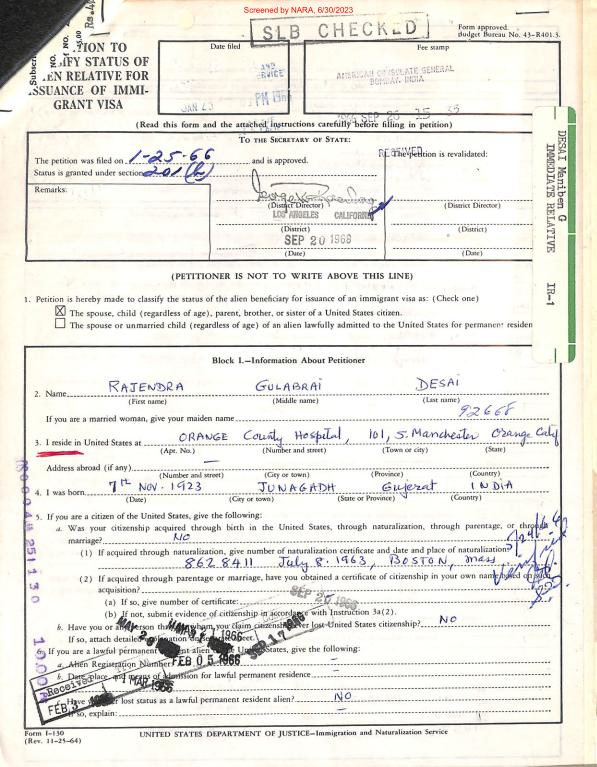 Screened by NARA, 6/30/2023
SLB CHECKED
Form approved.
Budget Bureau No. 43-R401.3.
Rs.
Subscri
NO.
TION TO
SIFY STATUS OF
EN RELATIVE FOR
ISSUANCE OF IMMI-
GRANT VISA
Date filed
JAN 25
PM 1966
Fee stamp
AMERICAN CONSULATE GENERAL
BOMBAY, INDIA
1966 SEP 26 15 35
(Read this form and the attached instructions carefully before filling in petition)
TO THE SECRETARY OF STATE:
The petition was filed on 1-25-66 and is approved.
Status is granted under section 201 (b)
RECEIVED
The petition is revalidated:
Remarks:
(District Director)
LOS ANGELES CALIFORNIA
(District)
SEP 20 1966
(Date)
(District Director)
(District)
(Date)
DESAI Maniben G
IMMEDIATE RELATIVE IR-1
(PETITIONER IS NOT TO WRITE ABOVE THIS LINE)
1. Petition is hereby made to classify the status of the alien beneficiary for issuance of an immigrant visa as: (Check one)
☒ The spouse, child (regardless of age), parent, brother, or sister of a United States citizen.
☐ The spouse or unmarried child (regardless of age) of an alien lawfully admitted to the United States for permanent residen
Block I.—Information About Petitioner
2. Name RAJENDRA GULABRAI DESAI
(First name) (Middle name) (Last name)
92668
If you are a married woman, give your maiden name
3. I reside in United States at ORANGE County Hospital, 101, S. Manchester Orange Calif
(Apt. No.) (Number and street) (Town or city) (State)
Address abroad (if any) —
(Number and street) (City or town) (Province) (Country)
4. I was born 7th NOV. 1923 JUNAGADH Gujerat INDIA
(Date) (City or town) (State or Province) (Country)
5. If you are a citizen of the United States, give the following:
a. Was your citizenship acquired through birth in the United States, through naturalization, through parentage, or through
marriage? NO
(1) If acquired through naturalization, give number of naturalization certificate and date and place of naturalization?
8628411 July 8. 1963, BOSTON, Mass
(2) If acquired through parentage or marriage, have you obtained a certificate of citizenship in your own name based on such
acquisition?
(a) If so, give number of certificate:
SEP 26 1966
(b) If not, submit evidence of citizenship in accordance with Instruction 3a(2).
b. Have you or any person through whom you claim citizenship ever lost United States citizenship? NO
If so, attach detailed explanation on separate sheet.
6. If you are a lawful permanent resident alien of the United States, give the following:
a. Alien Registration Number —
FEB 05 1966
b. Date, place, and means of admission for lawful permanent residence —
1 MAR 1966
Have you ever lost status as a lawful permanent resident alien? NO
If so, explain: —
Received
FEB 3 1966
SEP 17 1966
Form I-130
(Rev. 11-25-64)
UNITED STATES DEPARTMENT OF JUSTICE—Immigration and Naturalization Service